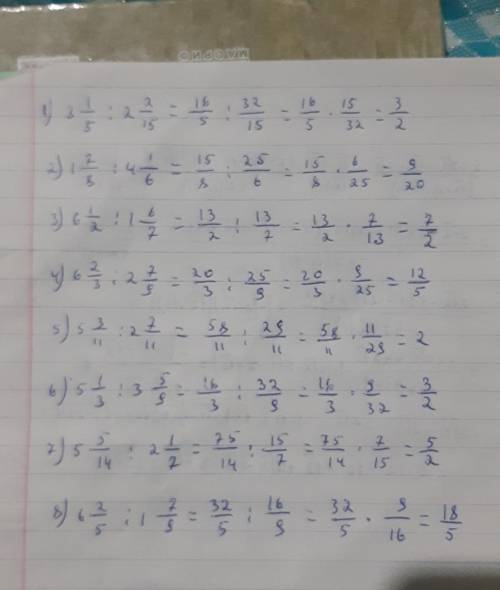 1) 3 1/5 : 2 2/15 = 16/5 : 32/15 = 16/5 · 15/32 = 3/2
2) 1 7/8 : 4 1/6 = 15/8 : 25/6 = 15/8 · 6/25 = 9/20
3) 6 1/2 : 1 6/7 = 13/2 : 13/7 = 13/2 · 7/13 = 7/2
4) 6 2/3 : 2 7/9 = 20/3 : 25/9 = 20/3 · 9/25 = 12/5
5) 5 3/11 : 2 7/11 = 58/11 : 29/11 = 58/11 · 11/29 = 2
6) 5 1/3 : 3 5/9 = 16/3 : 32/9 = 16/3 · 9/32 = 3/2
7) 5 5/14 : 2 1/7 = 75/14 : 15/7 = 75/14 · 7/15 = 5/2
8) 6 2/5 : 1 7/9 = 32/5 : 16/9 = 32/5 · 9/16 = 18/5